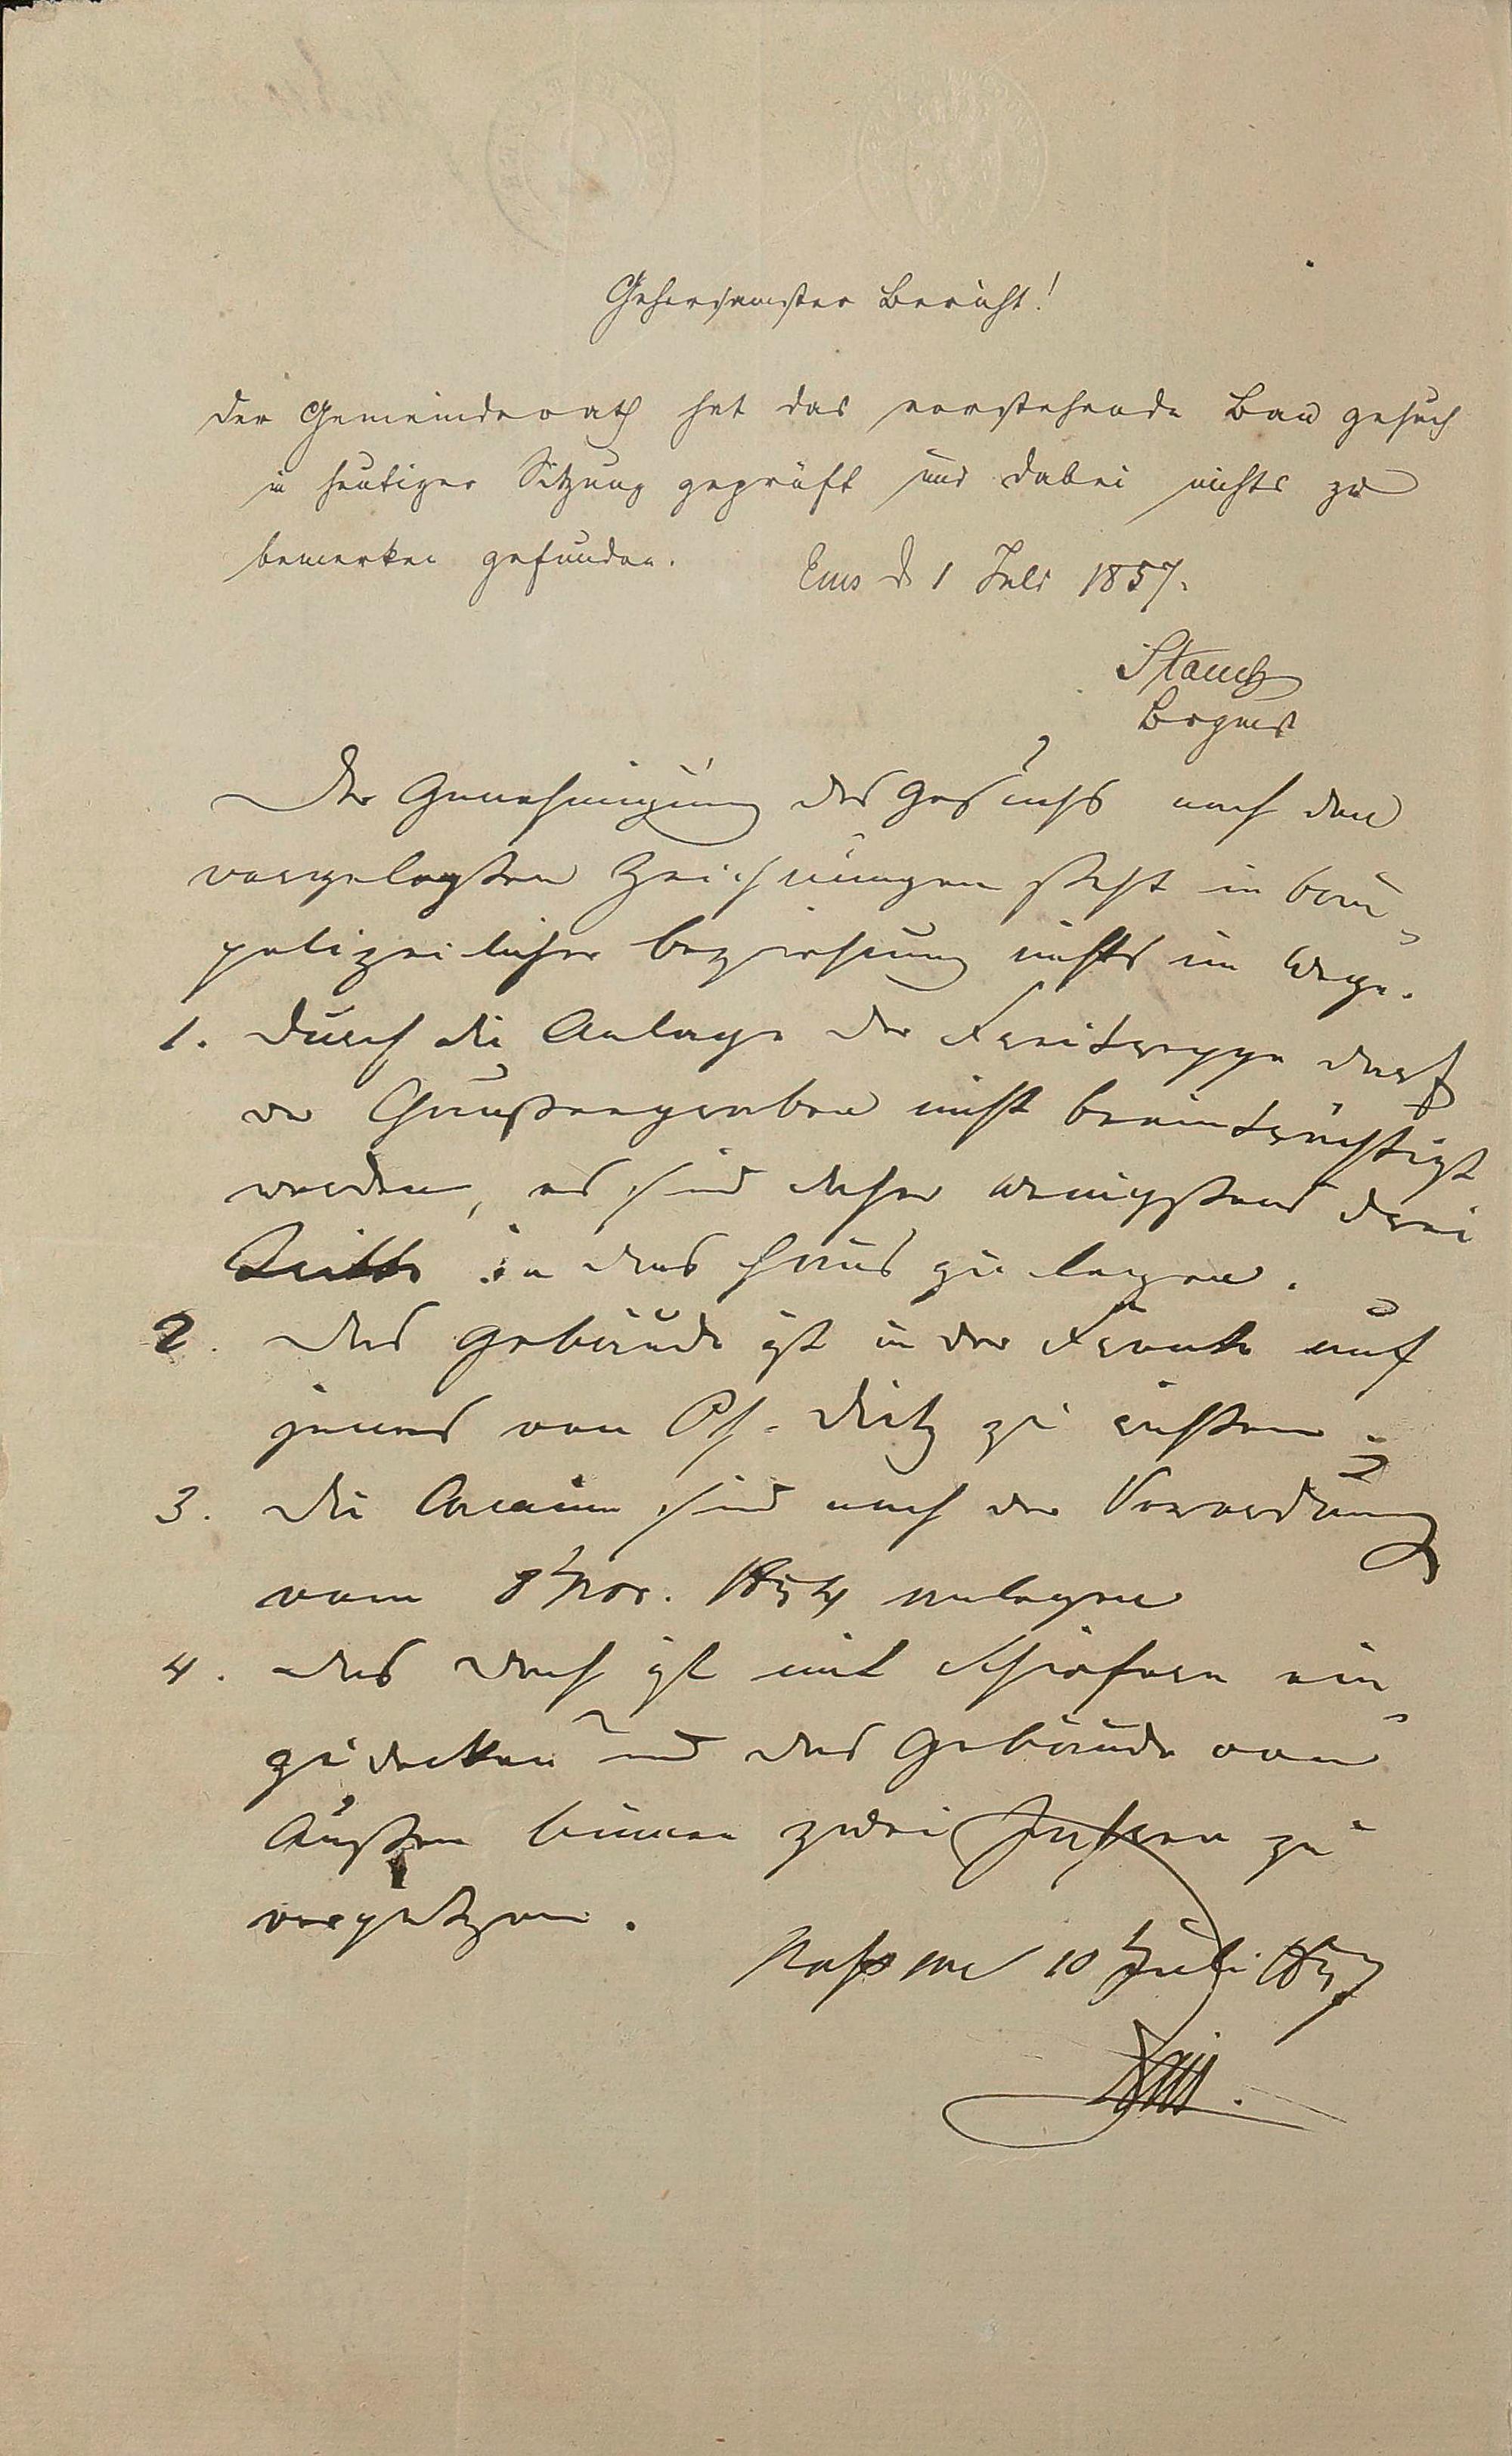 Gehorsamster Bericht!
Der Gemeinderath hat das vorstehende Bau gesuch
in heutiger Sitzung geprüft und dabei nichts zu
bemerken gefunden.
Ems d 1 Juli 1857.
Bürgmst
Der Genehmigung des Gesuchs nach den
vorgelegten Zeichnungen steht in bau
polizeilicher Beziehung nichts im Wege.
1. Durch die Anlage der Freitreppe darf
der Chausseegraben nicht beeinträchtigt
werden, es sind daher wenigstens drei
Tritte in das Haus zu legen.
2. Das Gebäude ist in der Fronte auf
jenes von Ph. Dietz zu richten.
3. Die Kamine sind nach der Verordnung
vom 8t Nov. 1854 anlegen
4. Das Dach ist mit Schiefern ein
zudecken und das Gebäude von
Außen binnen zwei Jahren zu
verputzen.
Nassau 10 Juli 1857